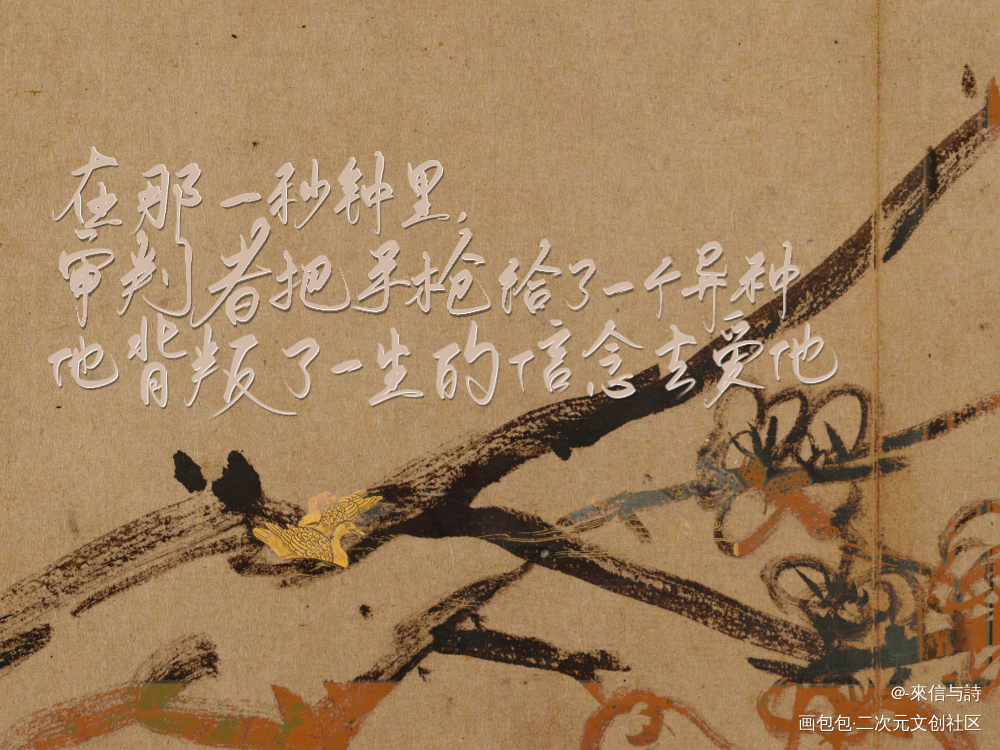 在那一秒钟里，
审判者把手枪给了一个异种
他背叛了一生的信念去爱他
@-來信与詩
画包包·二次元文创社区